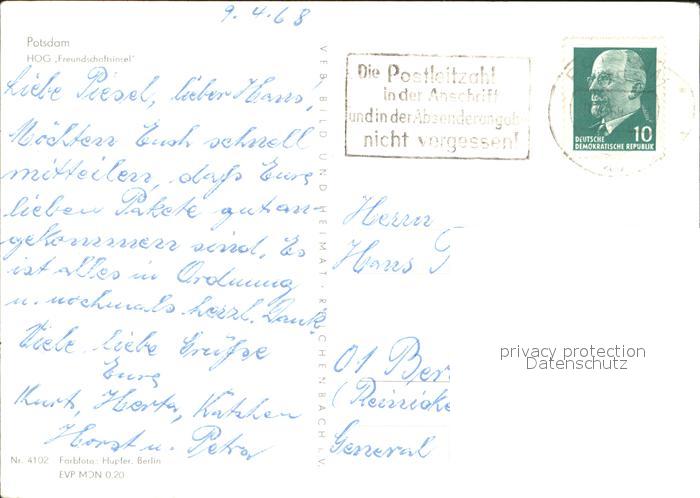 9.4.68
Potsdam
HOG „Freundschaftsinsel"
Liebe Piesel, lieber Hans!
Möchten Euch schnell
mitteilen, daß Eure
lieben Pakete gut an-
gekommen sind. Es
ist alles in Ordnung
u. nochmals herzl. Dank
Viele liebe Grüße
Eure
Kurt, Herta, Katchen
Horst u. Petra
Nr. 4102 Farbfoto: Hupfer, Berlin
EVP MDN 0,20
VEB BILD UND HEIMAT · REICHENBACH i. V.
Die Postleitzahl
in der Anschrift
und in der Absenderangabe
nicht vergessen!
10
DEUTSCHE
DEMOKRATISCHE REPUBLIK
Herrn
Hans T
01 Ber
(Reinicke
General
privacy protection
Datenschutz